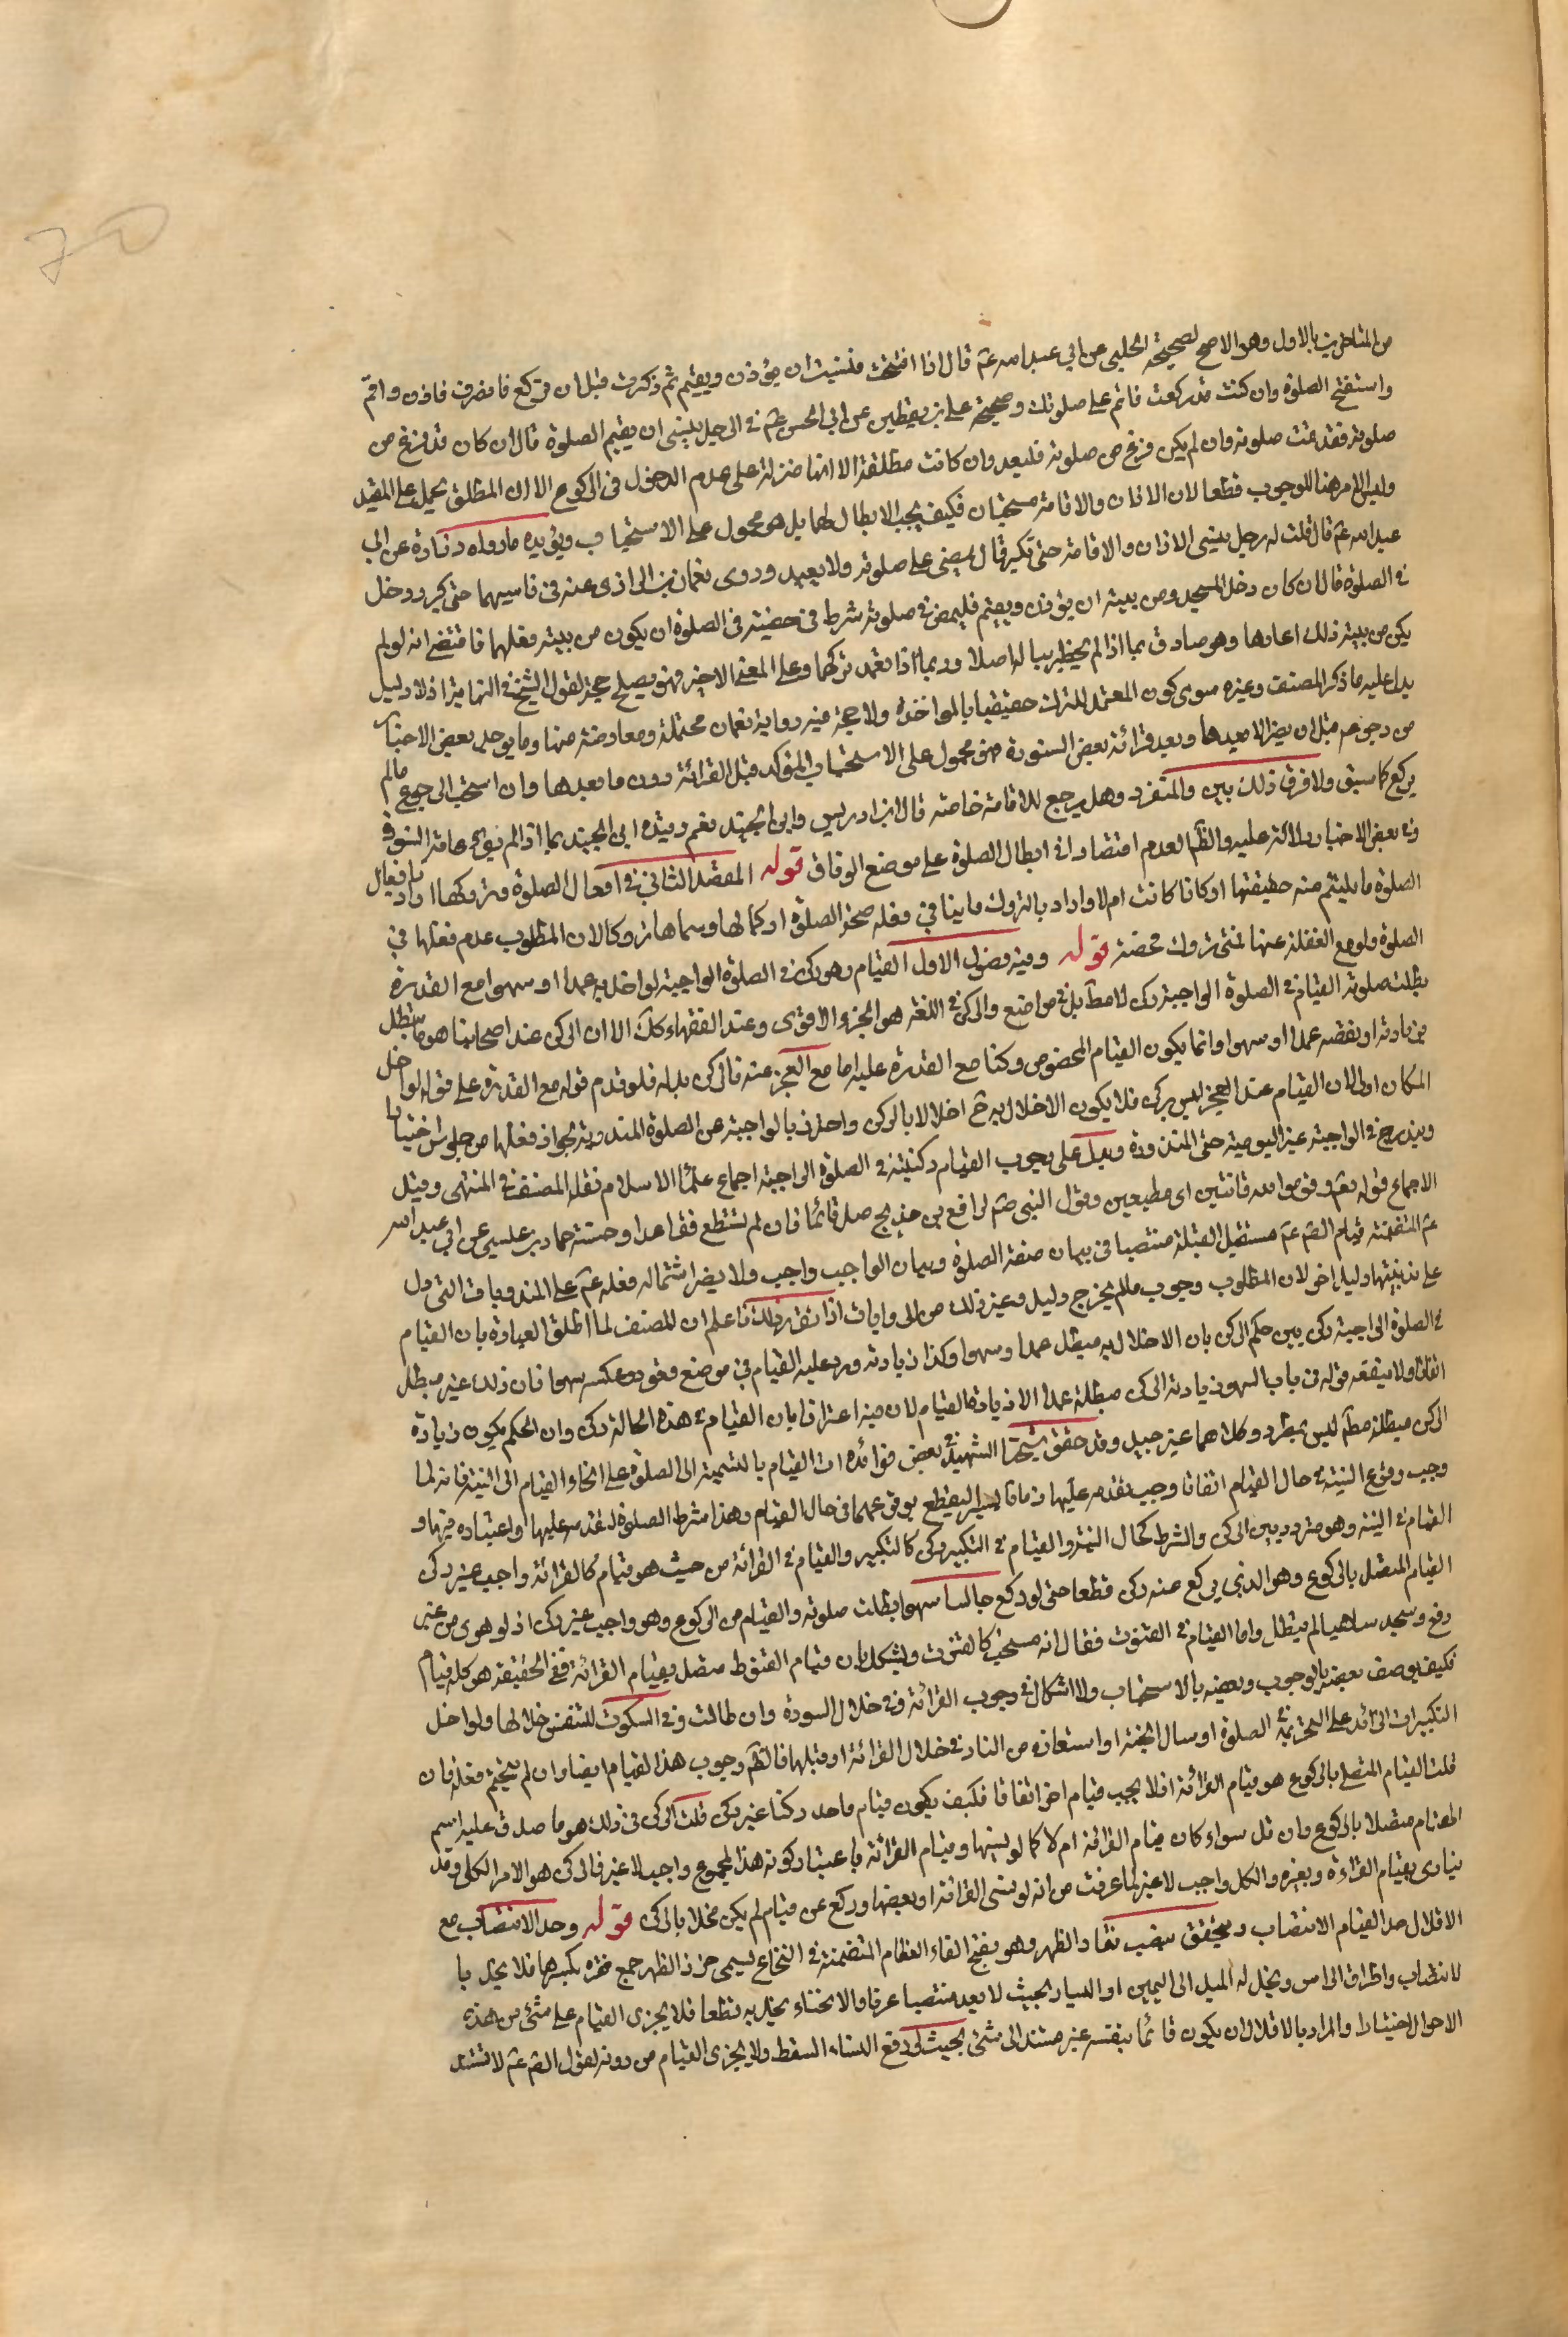 من المتاخرين بالاول وهو الاصح لصحيحة الحلبي عن ابي عبد الله عم قال اذا افتتحت فنسيت ان يؤذن ويقيم ثم ذكرت قبل ان تركع فانصرف فاذن واقم
واستفتح الصلوة وان كنت قد ركعت فاتم على صلوتك وصحيحة علي بن يقطين عن ابي الحسن عم في الرجل ينسى ان يقيم الصلوة قال ان كان قد فرغ من
صلوته فقد تمت صلوته وان لم يكن فرغ من صلوته فليعد وان كانت مطلقة الا انها منزلة على عدم الدخول في الركوع الا ان المطلق يحمل على المقيد
وليس الامر هنا للوجوب قطعا لان الاذان والاقامة مستحبان فكيف يجب الابطال لهما بل هو محمول على الاستحباب ويؤيده ما رواه زرارة عن ابي
عبد الله عم قال قلت له رجل ينسى الاذان والاقامة حتى تكبر قال يمضي على صلوته ولا يعيد وروى نعمان بن الرازي عنه في ناسيهما حتى كبر ودخل
في الصلوة قال ان كان دخل المسجد ومن نيته ان يؤذن ويقيم فليمض في صلوته شرط في مضيه في الصلوة ان يكون من نيته فعلهما فاقتضى انه لو لم
يكن من نيته ذلك اعادها وهو صادق بما اذا لم يخطر بباله اصلا وبما اذا تعمد تركهما وعلى المعنى الاخير فهو يصلح حجة لقول الشيخ في النهاية اذ لا دليل
يدل عليه ما ذكر المصنف وغيره سوى كون المعتمد للترك حقيقيا بالمواخذة ولا حجة فيه رواية نعمان محتملة ومعارضة منها وما يوجد بعض الاخبار
من رجوعه قبل ان يقرأ لا بعدها وبعد قرائة بعض السورة فهو محمول على الاستحباب المؤكد قبل القرائة دون ما بعدها وان استحب الرجوع ما لم
يركع كما سبق ولا فرق في ذلك بين والمنفرد وهل يرجع للاقامة خاصة قال ابن ادريس وابن الجنيد نعم وقيده ابن الجنيد بما اذا لم يقرء عامة السورة
وفي بعض الاخبار دلالة عليه والظم العدم اقتصارا في ابطال الصلوة على موضع الوفاق قوله المقصد الثاني في افعال الصلوة وتروكها اراد بافعال
الصلوة ما يلتئم منه حقيقتها اركانا كانت ام لا واراد بالتروك ما ينافي فعله صحة الصلوة او كمالها وسماها تروكا لان المطلوب عدم فعلها في
الصلوة ولو مع الغفلة عنها فهي تروك محضة قوله وفيه فصول الاول القيام وهو ركن في الصلوة الواجبة لو اخل به عمدا او سهوا مع القدرة
بطلت صلوته القيام في الصلوة الواجبة ركن لا مط بل في مواضع والركن في اللغة هو الجزء الاقوى وعند الفقهاء كك الا ان الركن عند اصحابنا هو ما تبطل
بزيادته او بنقصه عمدا او سهوا وانما يكون القيام المخصوص ركنا مع القدرة عليه اما مع العجز عنه فالركن بدله فلو قدم قوله مع القدرة على قوله لو اخل
لكان اولى لان القيام عند العجز ليس بركن فلا يكون الاخلال به ح اخلالا بالركن واحترز بالواجبة عن الصلوة المندوبة لجواز فعلها من جلوس اختيارا
ويندرج في الواجبة غير اليومية حتى المنذورة ويدل على وجوب القيام وركنيته في الصلوة الواجبة اجماع علماء الاسلام نقله المصنف في المنتهى وقبل
الاجماع قوله تع وقوموا لله قانتين اي مطيعين وقول النبي صم لرافع بن خديج صل قائما فان لم تستطع فقاعدا وحسنة حماد بن عيسى عن ابي عبد الله
عم المتضمنة قيام الصم عم مستقبل القبلة منتصبا في بيان صفة الصلوة وبيان الواجب واجب ولا يضر اشتماله فعله عم على المندوبات التي دل
على ندبيتها دليل اخر لان المطلوب وجوب ما لم يخرج دليل وغير ذلك من الروايات اذا تقرر ذلك فاعلم ان المصنف لما اطلق العبادة بان القيام
في الصلوة الواجبة ركن بين حكم الركن بان الاخلال به مبطل عمدا وسهوا وكذا زيادته ورد عليه القيام في موضع قعود وعكسه سهوا فان ذلك غير مبطل
اتفاقا ولا ينفعه قوله في باب السهو زيادة الركن مبطلة عمدا الا زيادة القيام لان فيه اعترافا بان القيام في هذه الحالة ركن وان الحكم بكون زيادة
الركن مبطلة مطم ليس بمطرد وكلاهما غير جيد وقد حقق شيخنا الشهيد في بعض فوائده ان القيام بالنسبة الى الصلوة على انحاء القيام الى النية فانه لما
وجب وقوع النية في حال القيام اتفاقا وجب تقدمه عليها زمانا يسيرا ليقطع بوقوعها في حال القيام وهذا شرط الصلوة لتقدمه عليها واعتباره فيها و
القيام في النية وهو متردد بين الركن والشرط كحال النية والقيام في التكبير ركن كالتكبير والقيام في القرائة من حيث هو قيام كالقرائة واجب غير ركن
القيام المتصل بالركوع وهو الذي يركع عنه ركن قطعا حتى لو ركع جالسا سهوا بطلت صلوته والقيام من الركوع وهو واجب غير ركن اذ لو هوى من غير
رفع وسجد ساهيا لم تبطل واما القيام في القنوت فقال انه مستحب كالقنوت ويشكل بان قيام القنوط متصل بقيام القرائة ففي الحقيقة هو كله قيام
فكيف يوصف بعضه بالوجوب وبعضه بالاستحباب ولا اشكال في وجوب القرائة وفي خلال السورة وان طالت وفي السكوت للتنفس خلالها ولو اخل
التكبيرات الزائد على التحريمة الصلوة او سال الجنة او استعاذه من النار في خلال القرائة او قبلها فالظم وجوب هذا القيام ايضا وان لم يتحتم فعله فان
قلت القيام المتصل بالركوع هو قيام القرائة اذ لا يجب قيام اخر اتفاقا فكيف يكون قيام واحد ركنا غير ركن قلت الركن في ذلك هو ما صدق عليه اسم
القيام متصلا بالركوع وان قل سواء كان قيام القرائة ام لا كما لو نسيها وقيام القرائة باعتبار كونه هذا المجموع واجب لا غير فالركن هو الامر الكلي وقد
يتادى بقيام القراءة وبغيره والكل واجب لا غير لما عرفت من انه لو نسى القرائة او بعضها وركع عن قيام لم يكن مخلا بالركن قوله وحد الانتصاب مع
الاقلال حد القيام الانتصاب ويتحقق بنصب فقار الظهر وهو بفتح الفاء العظام المتضمنة في النخاع ليسمى خرز الظهر جمع فقره بكسرها فلا يخل با
لانتصاب واطراق الراس ويخل له الميل الى اليمين او اليسار بحيث لا يعد منتصبا عرفا والانحناء يخل به قطعا فلا يجزى القيام على شئ من هذه
الاحوال اختيارا والمراد بالاقلال ان يكون قائما بنفسه غير مستند الى شئ بحيث لو رفع السناد السقط ولا يجزى القيام من دونه لقول الصم عم لا تستند